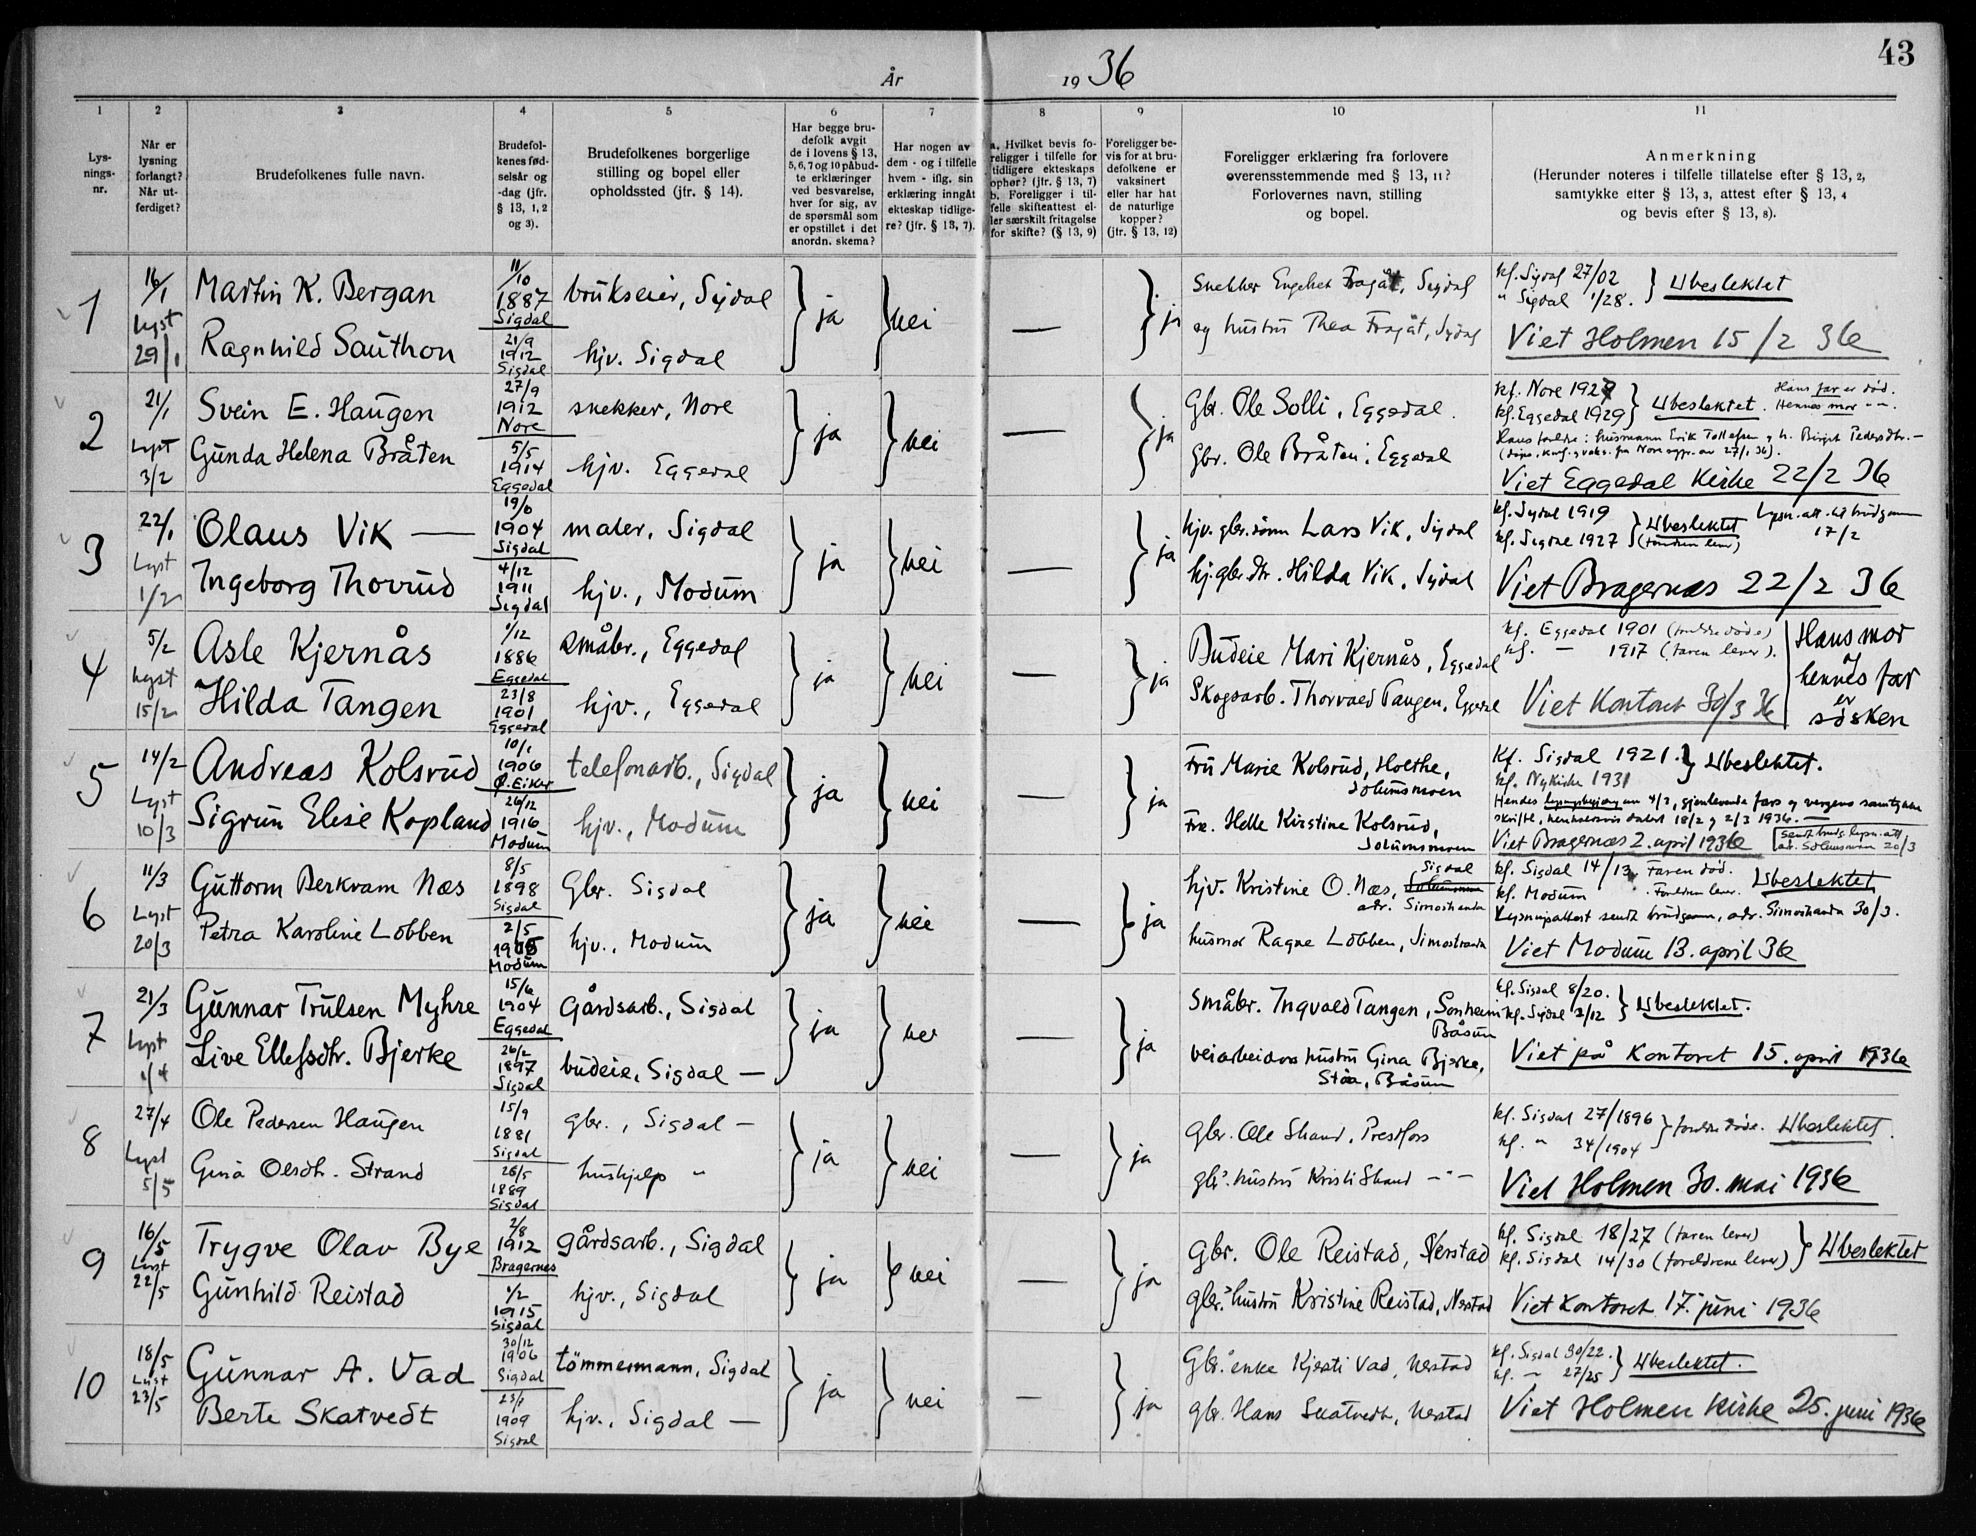 43
År 1936
1 2 3 4 5 6 7 8 9 10 11
Lys-
nings-
nr.
Når er
lysning
forlangt?
Når ut-
ferdiget?
Brudefolkenes fulle navn.
Brudefol-
kenes fød-
selsår og
-dag (jfr.
§ 13, 1, 2
og 3).
Brudefolkenes borgerlige
stilling og bopel eller
opholdssted (jfr. § 14).
Har begge bru-
defolk avgit
de i lovens § 13,
5, 6, 7 og 10 påbud-
te erklæringer
ved besvarelse,
hver for sig, av
de spørsmål som
er opstillet i det
anordn. skema?
Har nogen av
dem - og i tilfelle
hvem - iflg. sin
erklæring inngåt
ekteskap tidlige-
re? (jfr. § 13, 7).
a. Hvilket bevis fo-
religger i tilfelle for
tidligere ekteskaps
ophør? (jfr. § 13, 7)
b. Foreligger i til-
felle skifteattest el-
ler særskilt fritagelse
for skifte? (§ 13, 9)
Foreligger be-
vis for at bru-
defolkene er
vaksinert
eller har hat
de naturlige
kopper?
(jfr. § 13, 12)
Foreligger erklæring fra forlovere
overensstemmende med § 13, 11?
Forlovernes navn, stilling
og bopel.
Anmerkning
(Herunder noteres i tilfelle tillatelse efter § 13, 2,
samtykke efter § 13, 3, attest efter § 13, 4
og bevis efter § 13, 8).
1
16/1
Lyst
29/1
Martin K. Bergan
Ragnhild Sauthon
11/10
1887
Sigdal
21/9
1912
Sigdal
brukseier, Sigdal
hjv. Sigdal
ja
nei
—
ja
Snekker Engebret Fragåt, Sigdal
og hustru Thea Fragåt, Sigdal
kf. Sigdal 27/02
" Sigdal 1/28. Ubeslektet
Viet Holmen 15/2 36
2
21/1
Lyst
3/2
Svein E. Haugen
Gunda Helena Bråten
27/9
1912
Nore
5/5
1914
Eggedal
snekker, Nore
hjv. Eggedal
ja
nei
—
ja
Gbr. Ole Solli, Eggedal.
Gbr. Ole Bråten, Eggedal
kf. Nore 1927
kf. Eggedal 1929 Ubeslektet.
Hans far er død.
Hennes mor -"-.
Hans foreldre: husmann Erik Tollefsen og h. Birgit Pedersdtr. —
Viet Eggedal Kirke 22/2 36
3
22/1
Lyst
1/2
Olaus Vik —
Ingeborg Thovrud
19/6
1904
Sigdal
4/12
1911
Sigdal
maler, Sigdal
hjv., Modum
ja
nei
—
ja
hjv. gbr.sønn Lars Vik, Sigdal
hj. gbr.dtr. Hilda Vik, Sigdal
kf. Sigdal 1919
kf. Sigdal 1927 Ubeslektet
Lysn.att. til brudgom
17/2
Viet Bragernæs 22/2 36
4
5/2
Lyst
15/2
Asle Kjernås
Hilda Tangen
1/12
1886
Eggedal
23/8
1901
Eggedal
småbr., Eggedal
hjv., Eggedal
ja
nei
—
ja
Budeie Mari Kjernås, Eggedal
Skogsarb. Thorvald Tangen, Eggedal
kf. Eggedal 1901 (foreldre døde)
kf. — 1917 (faren lever).
Hans mor
og
hennes far
er
søsken
Viet Kontoret 30/3 36
5
14/2
Lyst
10/3
Andreas Kolsrud
Sigrun Elise Kopland
10/1
1906
Ø. Eiker
26/12
1916
Modum
telefonarb., Sigdal
hjv., Modum
ja
nei
—
ja
Fru Marie Kolsrud, Holthe,
Solumsmoen
Frk. Helle Kirstine Kolsrud,
Solumsmoen
Kf. Sigdal 1921. Ubeslektet.
kf. Nykirke 1931
skriftl., henholdsvis datert 18/2 og 2/3 1936. —
Viet Bragernæs 2. april 1936
6
11/3
Lyst
20/3
Guttorm Berkvam Næs
Petra Karoline Lobben
8/5
1898
Sigdal
2/5
Modum
Gbr. Sigdal
hjv., Modum
ja
nei
—
ja
hjv. Kristine O. Næs, Sigdal
adr. Simostranda
husmor Ragne Lobben, Simostranda
kf. Sigdal 14/13. Faren død.
kf. Modum. Foreldre lever. Ubeslektet
Lysningsattest sendt brudgom, adr. Simostranda 30/3.
Viet Modum 13. april 36
7
21/3
Lyst
1/4
Gunnar Trulsen Myhre
Live Ellefsdtr. Bjerke
15/6
1904
Eggedal
26/2
1897
Sigdal
Gårdsarb., Sigdal
budeie, Sigdal —
ja
nei
—
ja
Småbr. Ingvald Tangen, Sonheim
Båsum
veiarbeiders hustru Gina Bjerke,
Ståa, Båsum
kf. Sigdal 8/20.
kf. Sigdal 2/12 Ubeslektet.
Viet på Kontoret 15. april 1936
8
27/4
Lyst
5/5
Ole Pedersen Haugen
Gina Olsdtr. Strand
15/9
1881
Sigdal
26/5
1889
Sigdal
gbr., Sigdal —
hushjelp "
ja
nei
—
ja
Gbr. Ole Strand, Prestfoss
gbr.' hustru Kristi Strand -"-
kf. Sigdal 27/1896
kf. " 34/1904 foreldre døde. Ubeslektet.
Viet Holmen 30. mai 1936
9
16/5
Lyst
22/5
Trygve Olav Bye
Gunhild Reistad
2/8
1912
Bragernes
1/2
1915
Sigdal
gårdsarb., Sigdal
hjv., Sigdal
ja
nei
—
ja
Gbr. Ole Reistad, Nerstad
gbr.' hustru Kristine Reistad, Nerstad
kf. Sigdal 18/27 (faren lever)
kf. Sigdal 14/30 (foreldrene lever) Ubeslektet
Viet Kontoret 17. juni 1936
10
18/5
Lyst
23/5
Gunnar A. Vad
Berte Skatvedt
30/12
1906
Sigdal
1909
Sigdal
tömmermann, Sigdal
hjv., Sigdal —
ja
nei
—
ja
Gbr. enke Kjersti Vad, Nerstad
gbr. Hans Skatvedt, Nerstad
kf. Sigdal 30/22.
kf. — 27/25 Ubeslektet.
Viet Holmen Kirke 25. juni 1936